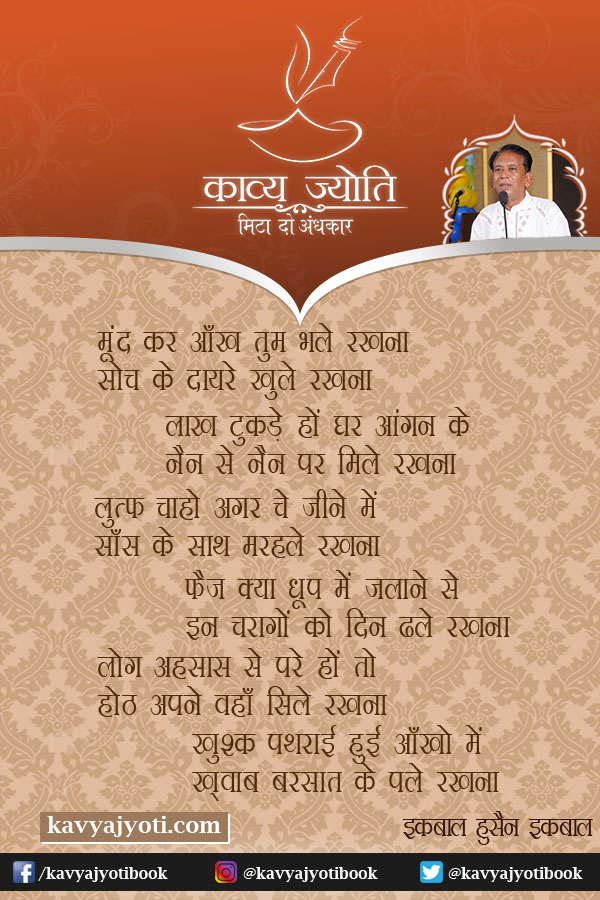 काव्य ज्योति
मिटा दो अंधकार
मूंद कर आँख तुम भले रखना
सोच के दायरे खुले रखना
लाख टुकड़े हों घर आंगन के
नैन से नैन पर मिले रखना
लुत्फ चाहो अगर चे जीने में
साँस के साथ मरहले रखना
फैज क्या धूप में जलाने से
इन चरागों को दिन ढले रखना
लोग अहसास से परे हों तो
होठ अपने वहाँ सिले रखना
खुश्क पथराई हुई आँखो में
ख़्वाब बरसात के पले रखना
kavyajyoti.com
इकबाल हुसैन इकबाल
/kavyajyotibook
@kavyajyotibook
@kavyajyotibook